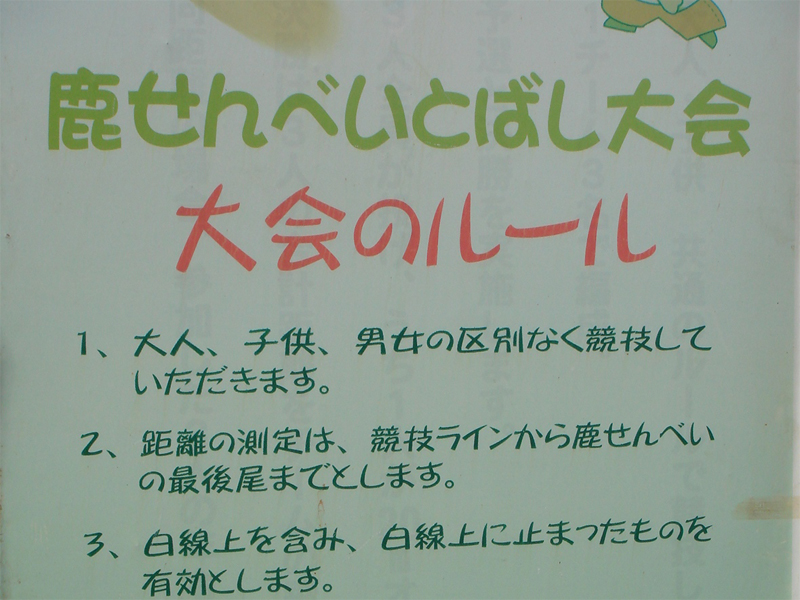 鹿せんべいとばし大会
大会のルール
1、大人、子供、男女の区別なく競技して
いただきます。
2、距離の測定は、競技ラインから鹿せんべい
の最後尾までとします。
3、白線上を含み、白線上に止まったものを
有効とします。